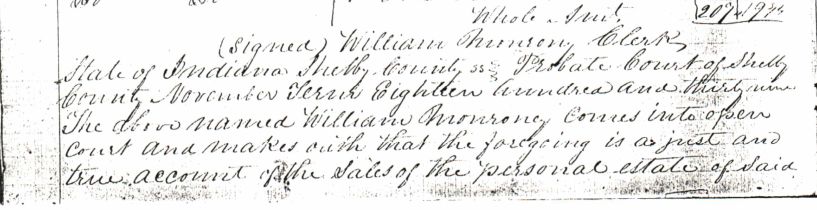 Whole Amt. 207.19¾
(Signed) William Monroney Clerk
State of Indiana Shelby County ss Probate Court of Shelby
County November Term Eighteen hundred and thirty nine
The above named William Monroney comes into open
court and makes outh that the foregoing is a just and
true account of the Sales of the personal estate of Said